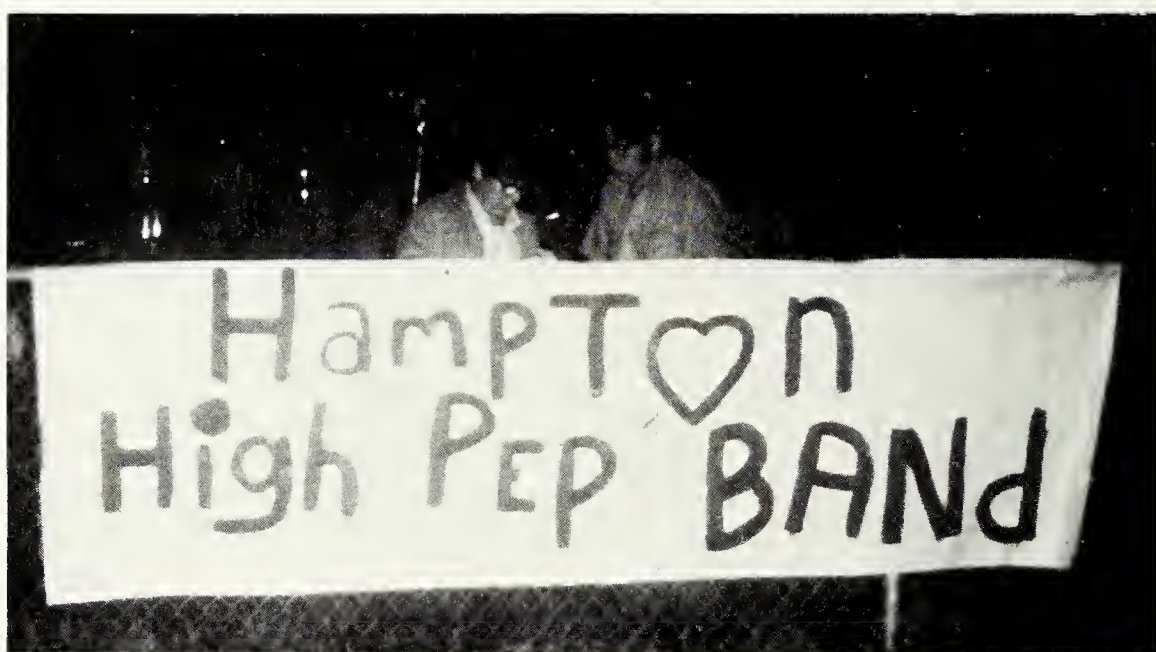 HampT♡n
High PEp BANd